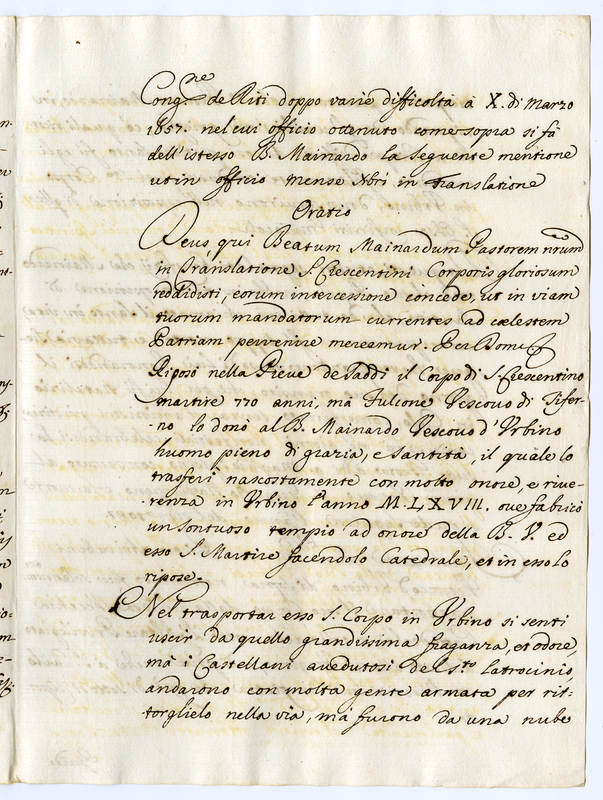 Cong.ne de Riti doppo varie difficoltà à X. di Marzo
1657. nel cui officio ottenuto come sopra si fà
dell'istesso B. Mainardo la seguente mentione
ut in officio mense Xbri in translatione
Oratio
Deus, qui Beatum Mainardum Pastorem nrum
in Translatione S. Crescentini Corporis gloriosum
reddidisti, eorum intercessione concede, ut in viam
tuorum mandatorum currentes ad cælestem
Patriam pervenire mereamur. Per Domu
Riposò nella Pieve de Saddi il Corpo di S. Crescentino
martire 770 anni, mà Fulcone Vescovo di Tifer-
-no lo donò al B. Mainardo Vescovo d'Urbino
huomo pieno di grazia, e santità, il quale lo
trasferì nascostamente con molto onore, e rive-
renza in Urbino l'anno M.LXVIII. ove fabricò
un sontuoso tempio ad onore della B. V. ed
esso S. Martire facendolo Catedrale, et in esso lo
ripose.
Nel trasportar esso S. Corpo in Urbino si sentì
uscir da quello grandissima fraganza, et odore,
mà i Castellani avedutosi del s.to latrocinio,
andarono con molta gente armata per rit=
torglielo nella via, mà furono da una nube